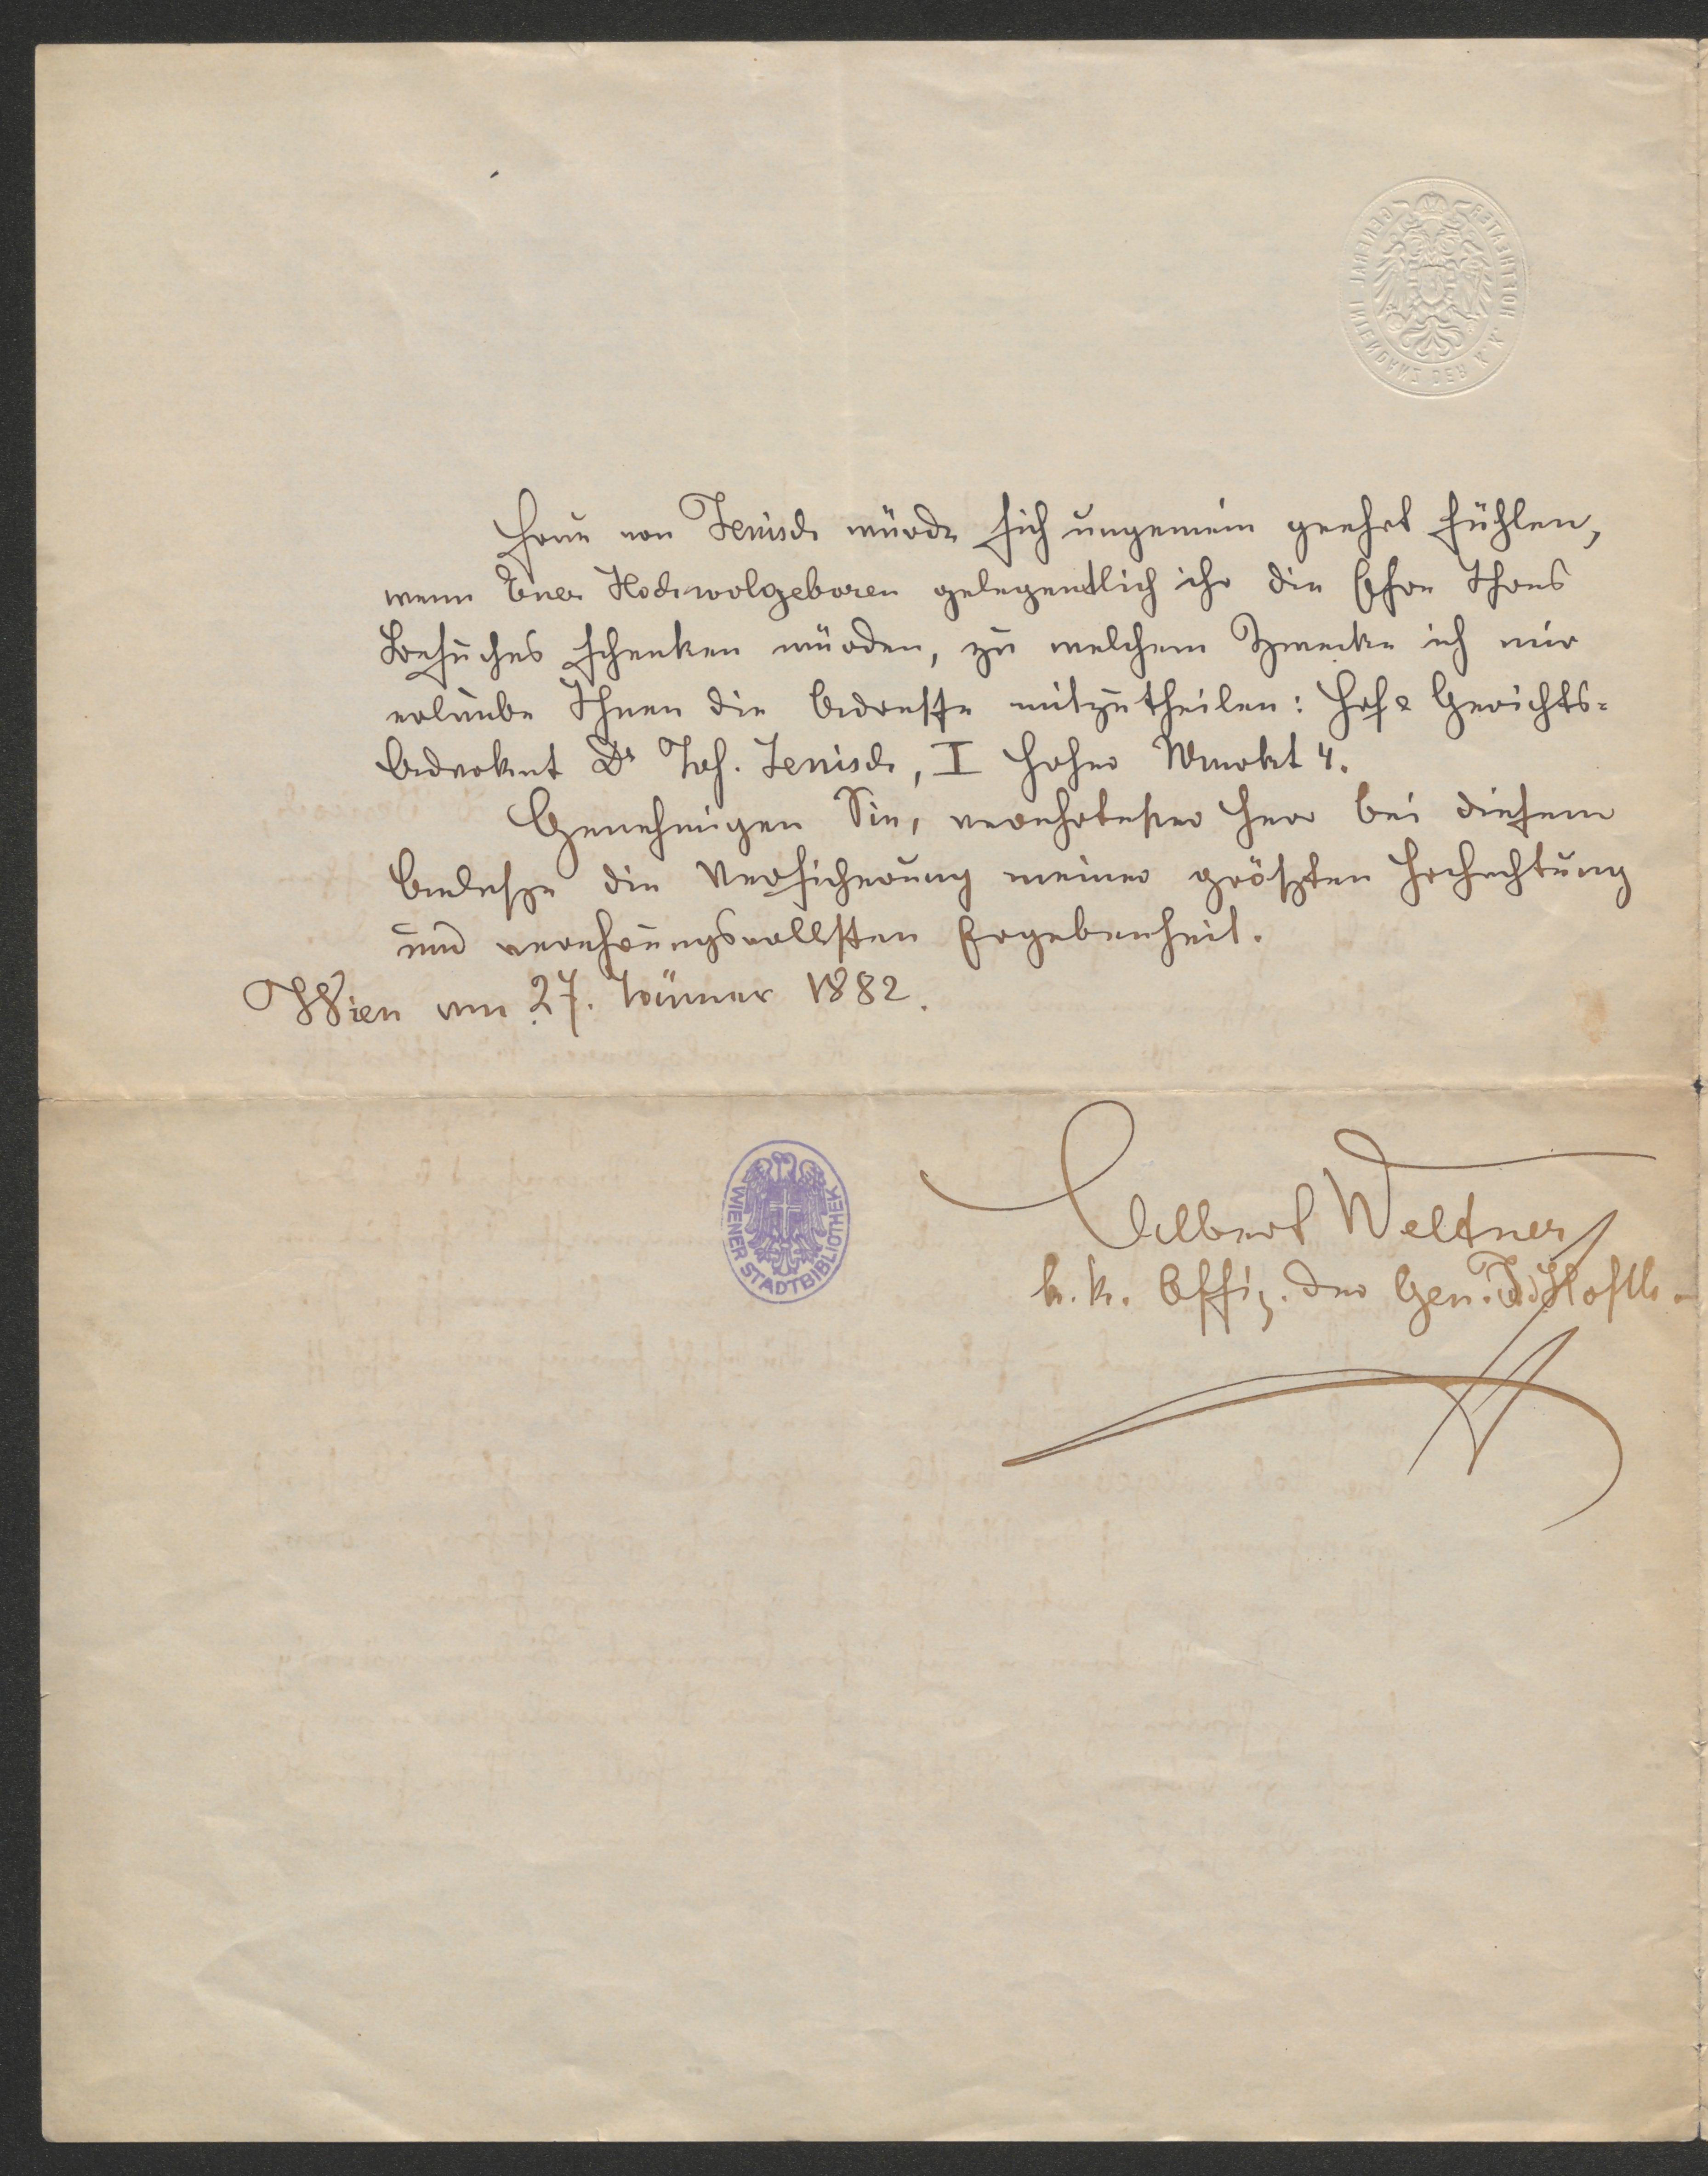 GENERAL INTENDANZ DER K. K. HOFTHEATER
Frau von Jenisch würde sich ungemein geehrt fühlen,
wenn Euer Hochwolgeboren gelegentlich ihr die Ehre Ihres
Besuches schenken würden, zu welchem Zwecke ich mir
erlaube Ihnen die Adresse mitzutheilen: Hof & Gerichts-
Advokat Dr Joh. Jenisch, I Hoher Markt 4.
Genehmigen Sie, verehrtester Herr bei diesem
Anlasse die Versicherung meiner größten Hochachtung
und verehrungsvollsten Ergebenheit.
Wien am 27. Jänner 1882.
Albert Weltner
k. k. Offiz. der Gen. I. d. Hofth.
WIENER STADTBIBLIOTHEK